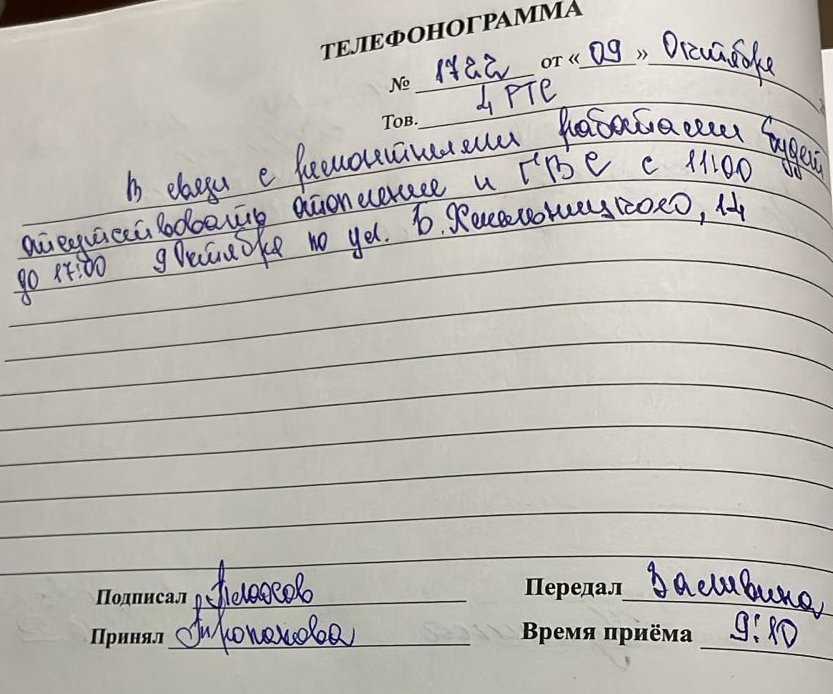 ТЕЛЕФОНОГРАММА
№ 1722 от «09» Октября
Тов. 4 РТС
В связи с ремонтными работами будет
отсутствовать отопление и ГВС с 11:00
до 17:00 9 Октября по ул. Б. Хмельницкого, 14
Подписал
Передал Заливина
Принял
Время приёма 9:10